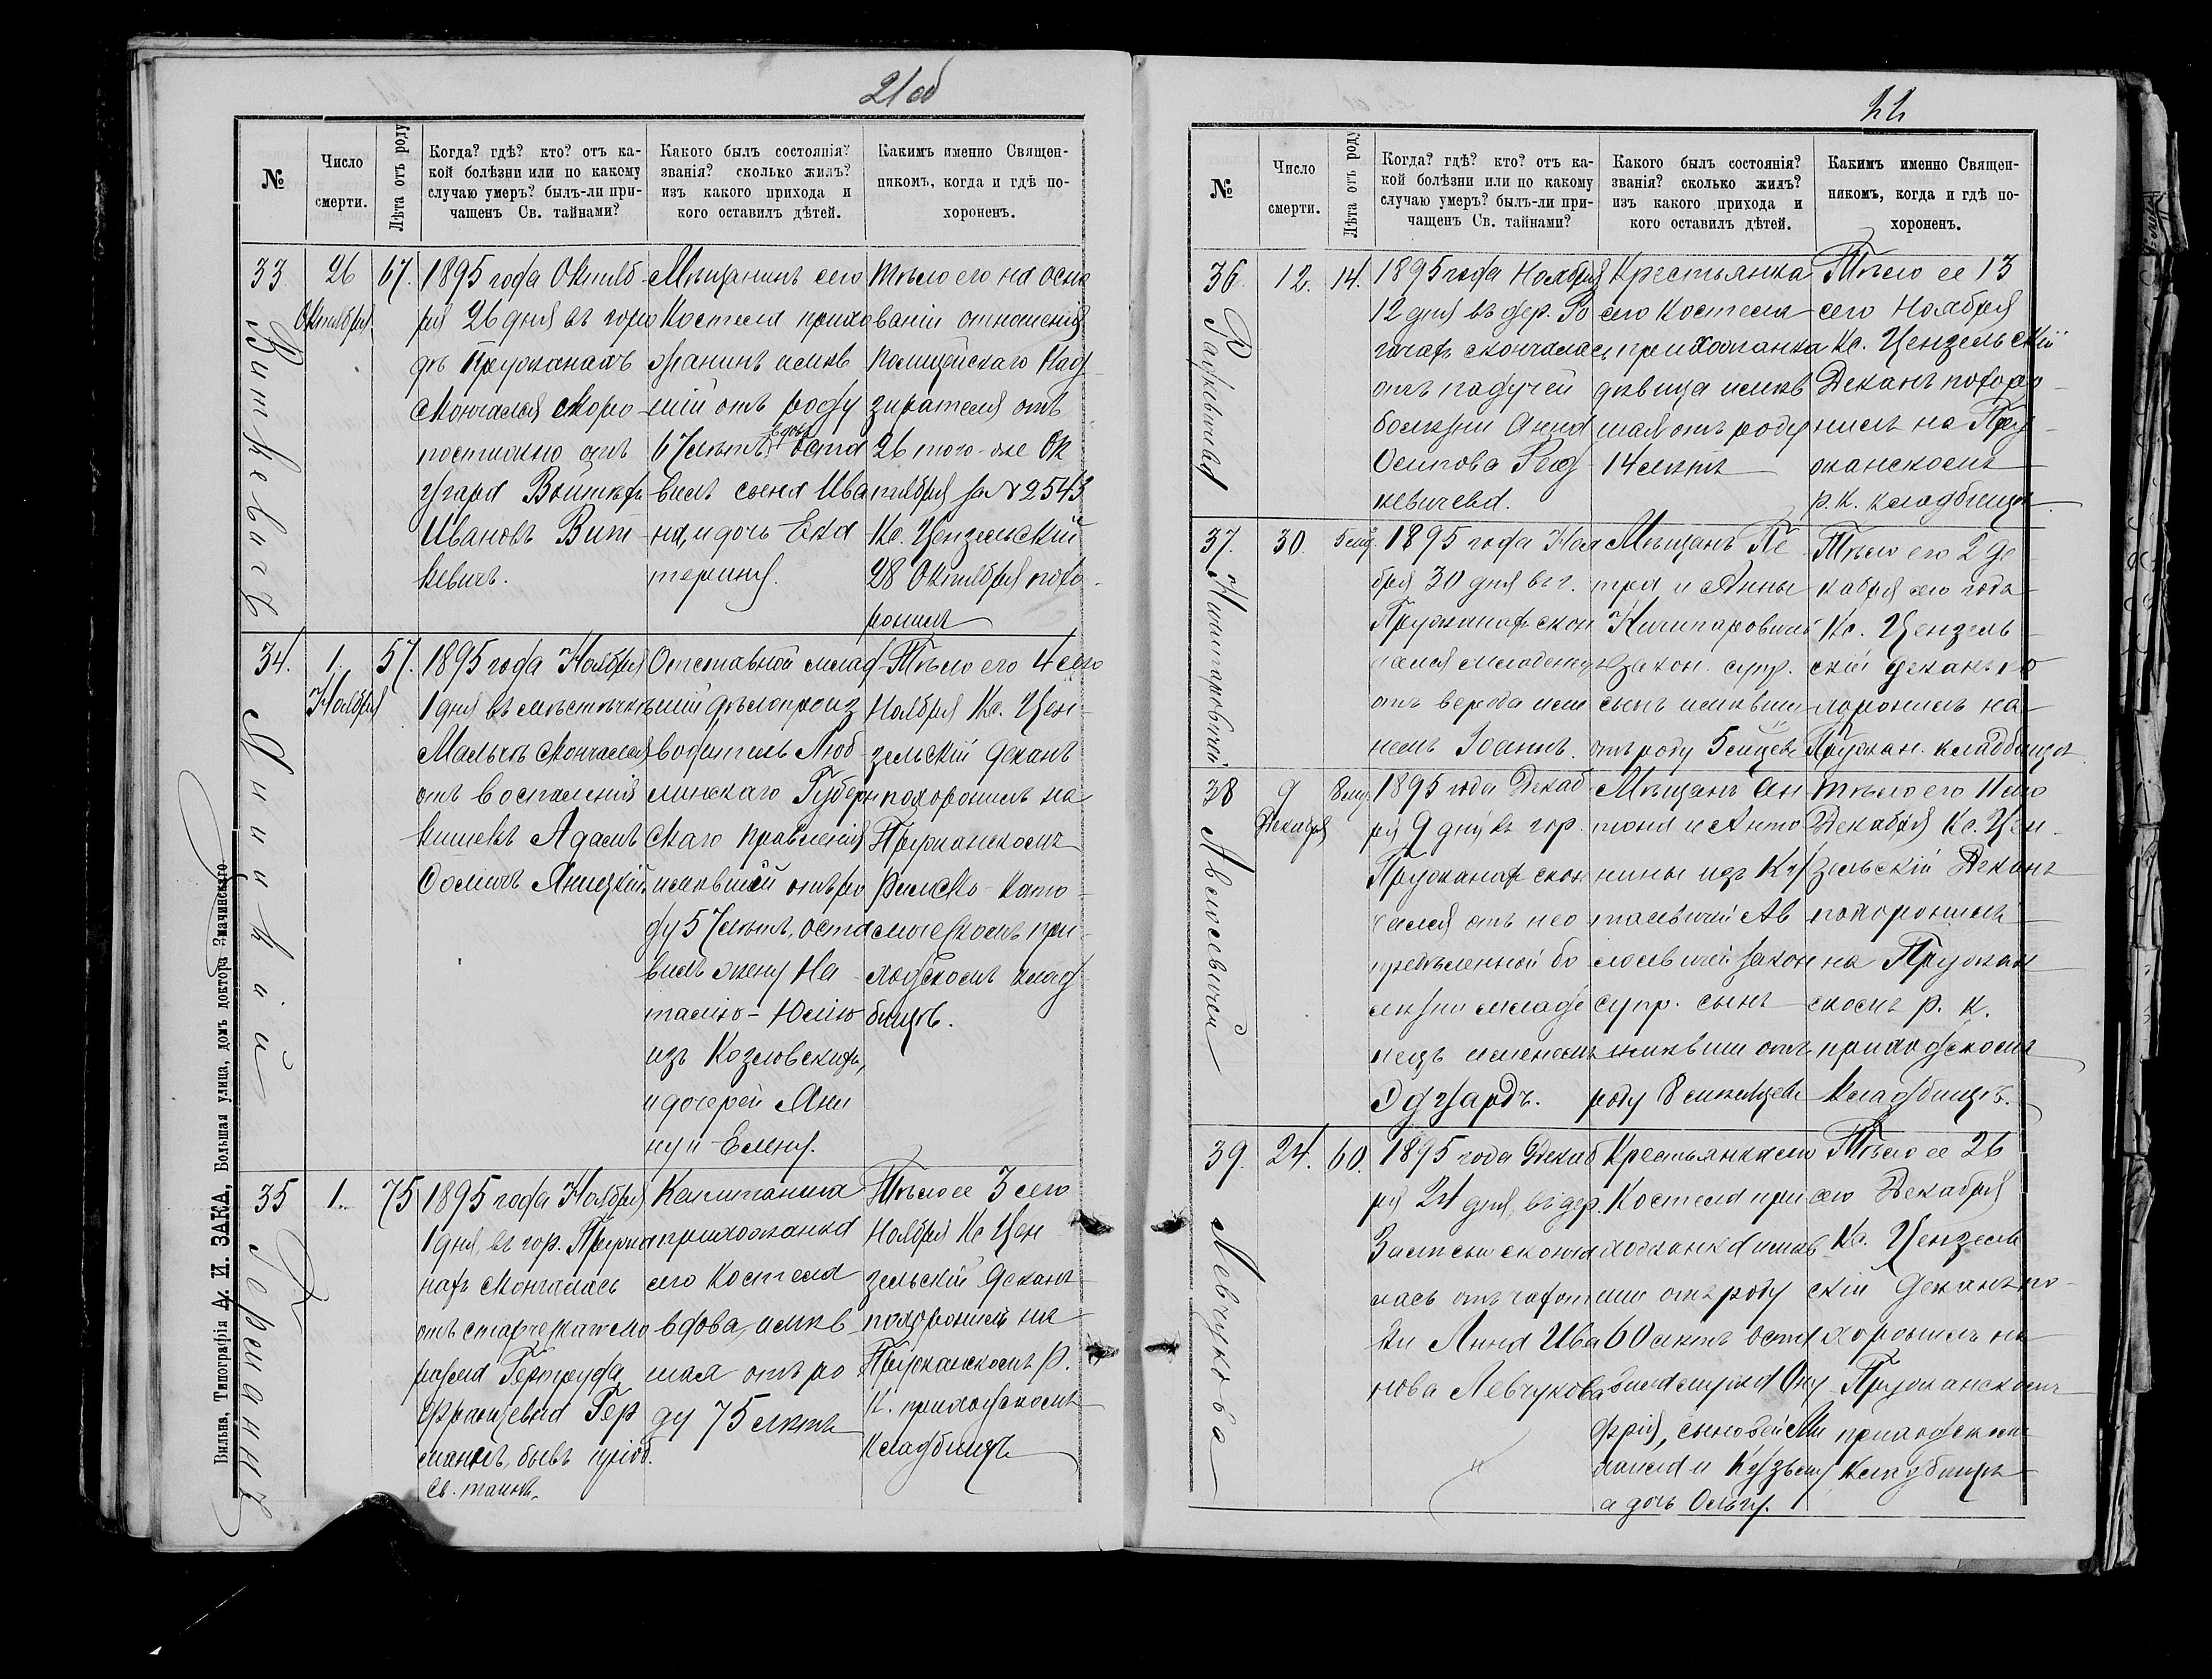 21об
№
Число смерти.
Лѣта отъ роду
Когда? гдѣ? кто? отъ ка-
кой болѣзни или по какому
случаю умеръ? былъ-ли при-
чащенъ Св. тайнами?
Какого былъ состоянія?
званія? сколько жилъ?
изъ какого прихода и
кого оставилъ дѣтей.
Какимъ именно Священ-
никомъ, когда и гдѣ по-
хороненъ.
33.
Виткевичъ
26
Октября
67.
1895 года Октяб
ря 26 дня въ горо
дѣ Пружанахъ
скончался скоро
постижно отъ
угара Войтехъ
Ивановъ Вит
кевичъ.
Мѣщанинъ сего
Костела прихо
жанинъ имѣв
шій отъ роду
67 лѣтъ, вдов. оста
вилъ сына Ива
на, и дочь Ека
терину.
Тѣло его на осно
ваніи отношенія
Полицейскаго Над
зирателя отъ
26 того-же Ок
тября за № 2543
Кс. Цензельскій
28 Октября похо-
ронилъ
34.
Яницкій
1.
Ноября
57.
1895 года Ноября
1 дня въ мѣстечкѣ
Мальчъ скончался
отъ воспаленія
кишекъ Адамъ
Яницкій
Отставной млад
шій дѣлопроиз
водитель Люб
линскаго Губерн
скаго Правленія
имѣвшій отъ ро
ду 57 лѣтъ, оста
вилъ жену На
талію-Юлію
изъ Козловскихъ,
и дочерей Яни
ну и Елену.
Тѣло его 4 сего
Ноября Кс. Цен-
зельскій деканъ
похоронилъ на
Пружанскомъ
Римско-като-
лическомъ при-
ходскомъ клад
бищѣ.
35
Германцъ
1.
75
1895 года Ноября
1 дня, въ гор. Пружа
нахъ скончалась
отъ старческаго ма
разма Гертруда
Францевна Гер
манцъ, бывъ пріоб.
Св. таинъ.
Капитанша
прихожанка
сего Костела
вдова, имѣв
шая отъ ро
ду 75 лѣтъ
Тѣло ее 3 сего
Ноября Кс Цен
зельскій деканъ
похоронилъ на
Пружанскомъ Р.
К. приходскомъ
Кладбищѣ
Вильна, Типографія А. И. ЗАКА, Большая улица, домъ доктора Значинскаго
22
№
Число смерти.
Лѣта отъ роду
Когда? гдѣ? кто? отъ ка-
кой болѣзни или по какому
случаю умеръ? былъ-ли при-
чащенъ Св. тайнами?
Какого былъ состоянія?
званія? сколько жилъ?
изъ какого прихода и
кого оставилъ дѣтей.
Какимъ именно Священ-
никомъ, когда и гдѣ по-
хороненъ.
36.
12.
14.
1895 года Ноября
12 дня въ дер. Ро
скончалась
отъ падучей
болѣзни Анна
Осипова
Крестьянка
сего Костела
прихожанка
дѣвица имѣв
шая отъ роду
14 лѣтъ
Тѣло ее 13
сего Ноября
Кс. Цензельскій
Деканъ похоро-
нилъ на Пру-
жанскомъ
р. к. кладбищѣ.
37.
30.
5 мѣс.
1895 года Ноя
бря 30 дня въ г.
Пружанахъ скон
чался младенецъ
име
немъ Іоаннъ.
Мѣщанъ Пе
тра и Анны
закон. супр.
сынъ имѣвши
отъ роду 5 мѣсяцевъ
Тѣло его 2 де
кабря сего года
Кс. Цензель-
скій деканъ по
хоронилъ на
Пружан. кладбищѣ
38
9
Декабря
8 мѣс.
1895 года Декаб
ря 9 дня въ гор.
Пружанахъ скон
чался отъ нео
предѣленной бо
лѣзни младе
нецъ именемъ
Эдуардъ.
Мѣщанъ Ан
тона и Анто
нины изъ
закон
супр. сынъ
имѣвши отъ
роду 8 мѣсяцевъ
Тѣло его 11 сего
Декабря Кс. Цен-
зельскій Деканъ
похоронилъ
на Пружан
скомъ р. к.
приходскомъ
Кладбищѣ.
39.
Левчукова
24.
60.
1895 года Декаб
ря 24 дня, въ дер.
сконча
лась отъ чахот
ки Анна Ива
нова Левчукова
Крестьянка сего
Костела при
хожанка имѣв
ши отъ роду
60 лѣтъ оста
вила мужа Ону
фрія, сыновей Ми
хаила и Кузьму
а дочь Ольгу.
Тѣло ее 26
сего Декабря
Кс. Цензель
скій деканъ по-
хоронилъ на
Пружанскомъ
приходскомъ
Кладбищѣ